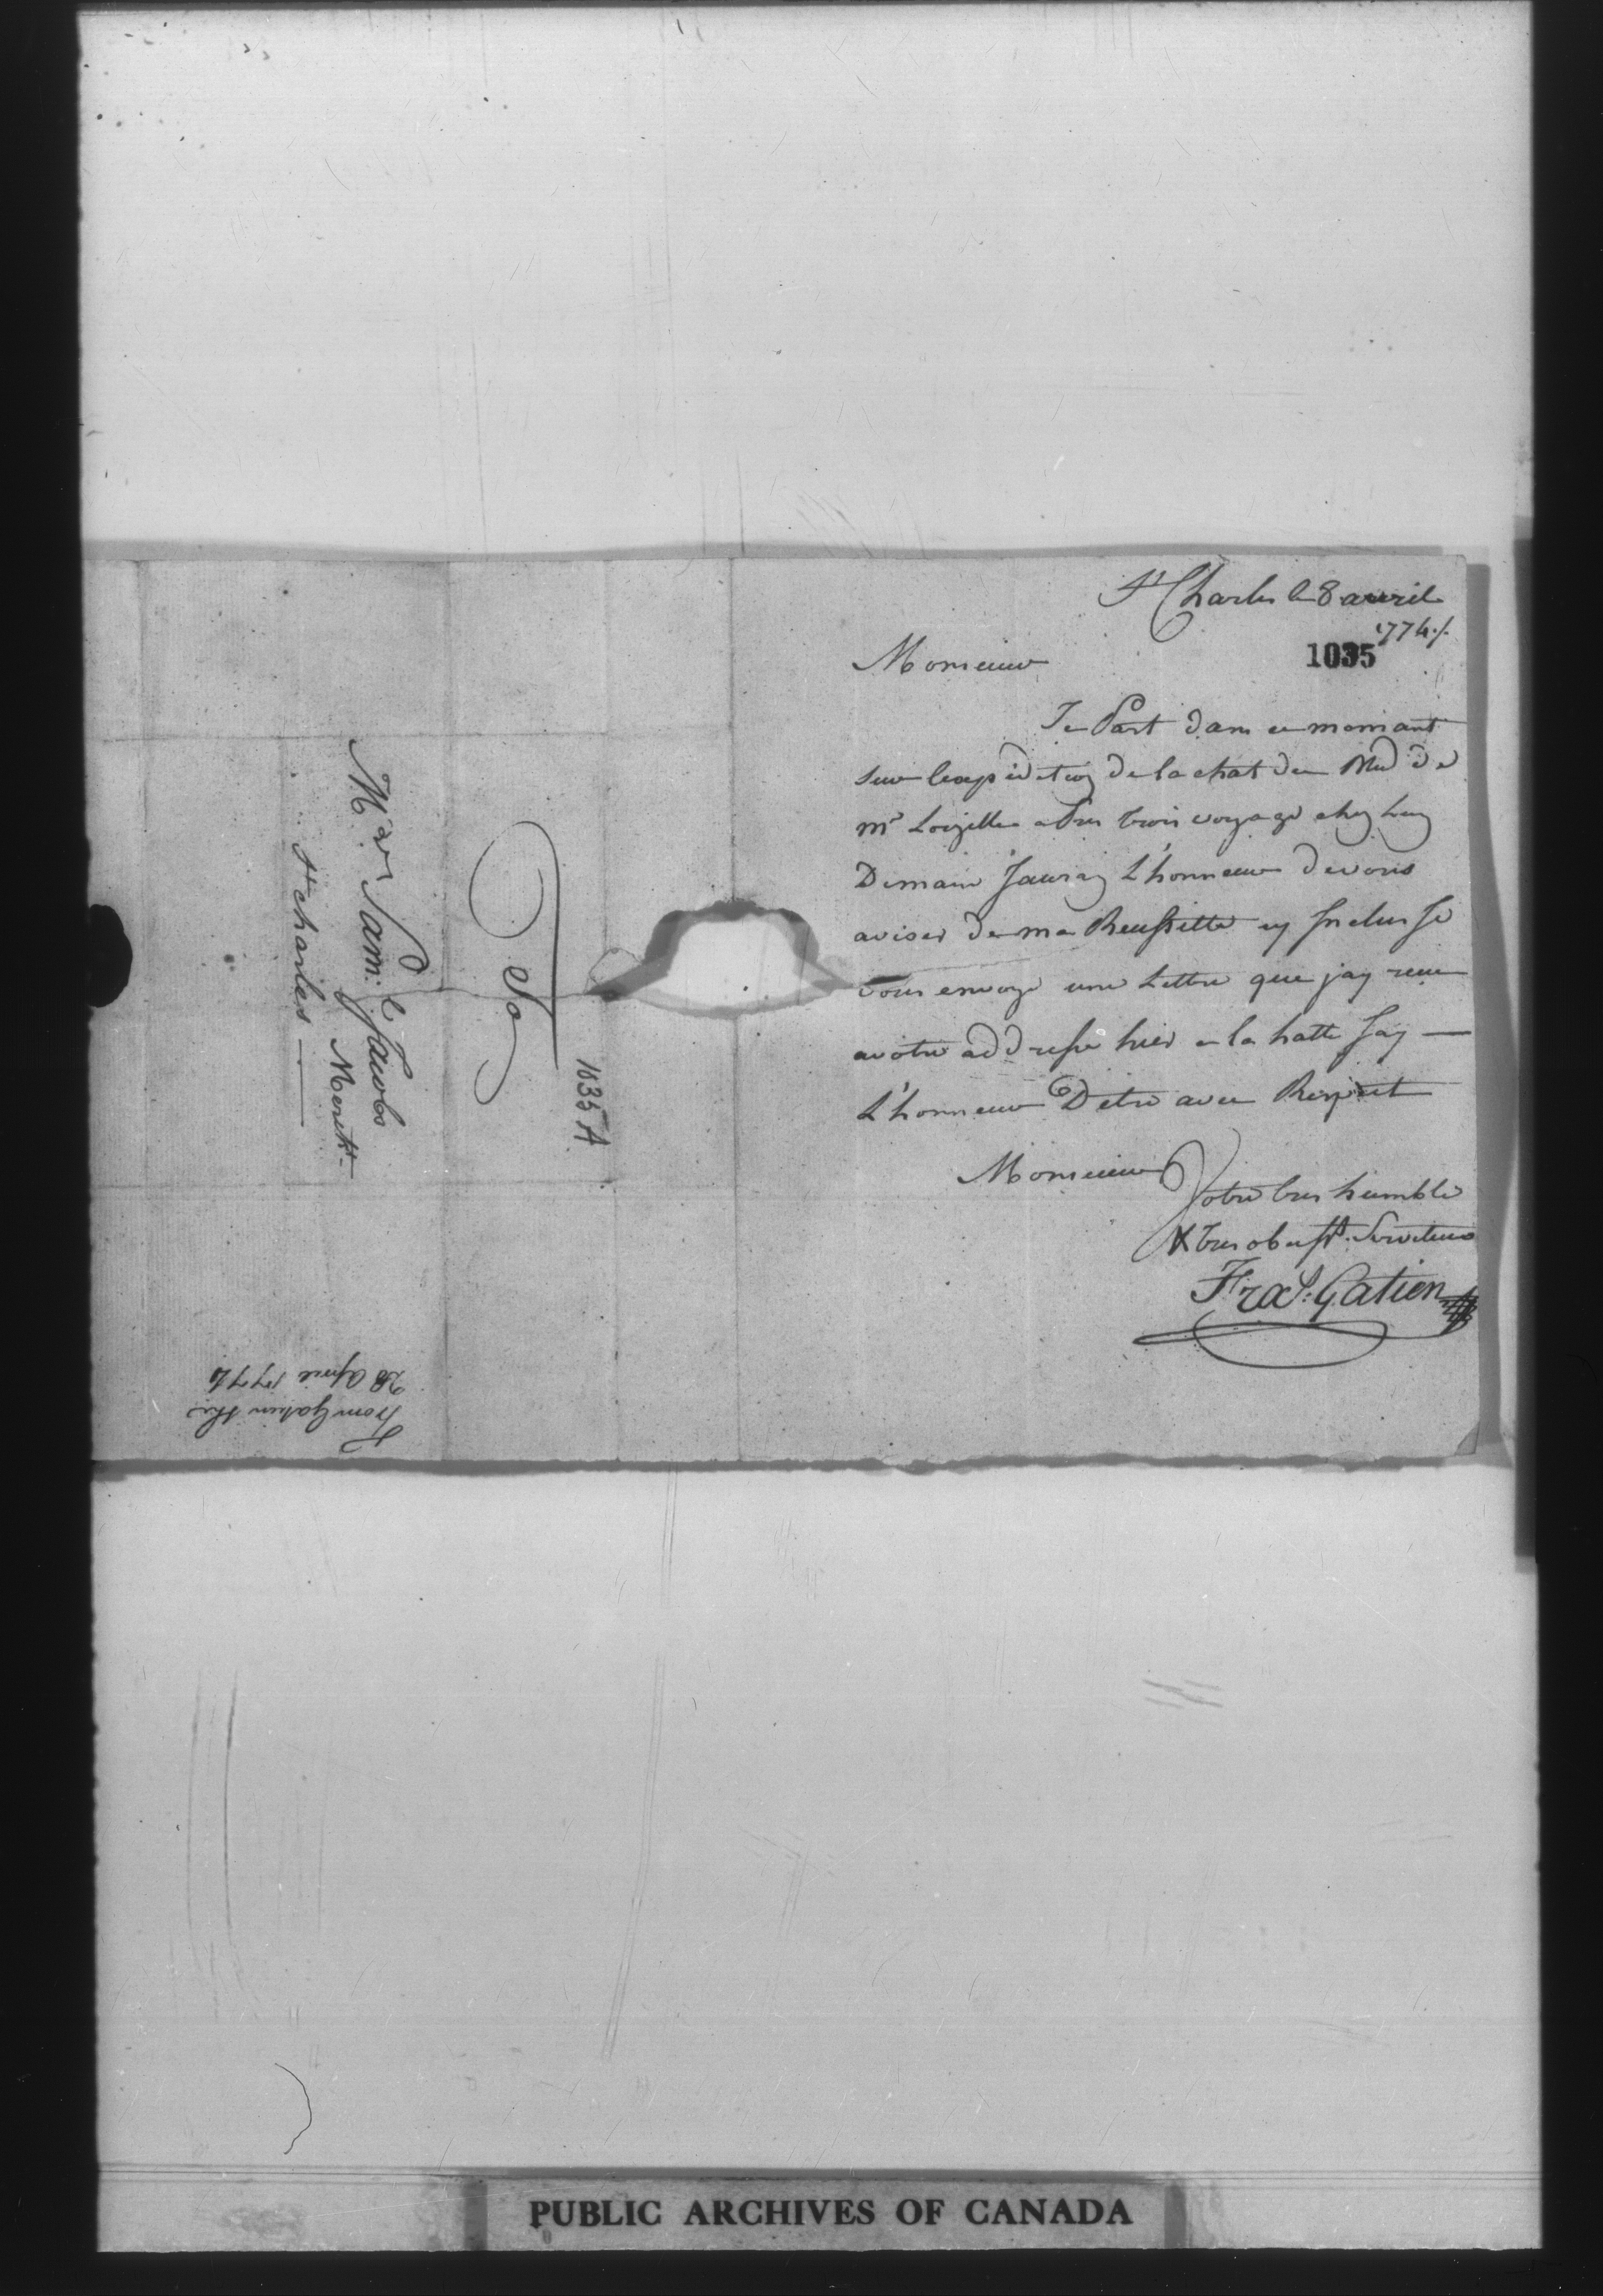 St Charles le 8 avril
1774 ./.
1035
Monsieur
Je Part dans ce momant
sur lexpidition de lachat du Bled de
mr Loizelle apres trois voyage chez Luy
Demain Jauray L'honneur de vous
aviser de ma Reussitte cy Inclus Je
vous envoye une Lettre que jay reçue
a votre addresse hier a la hatte Jay —
L'honneur D'etre avec Respect
Monsieur
Votre tres humble
& tres obeisst. Serviteur
Fras. Gatien
1035 A
To
Mr Saml. Jacobs
Mercht
St charles —
From Gatien the
28 April 1774
PUBLIC ARCHIVES OF CANADA